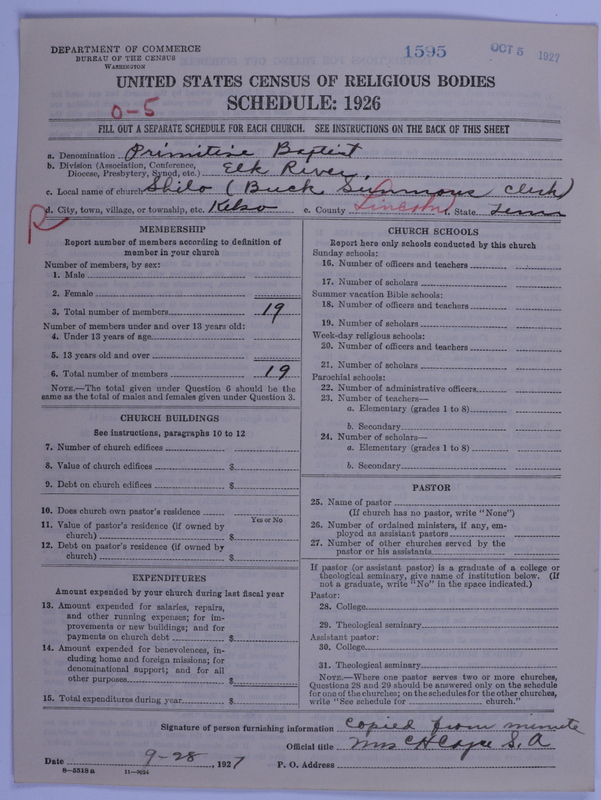 DEPARTMENT OF COMMERCE
BUREAU OF THE CENSUS
WASHINGTON
1595
OCT 5 1927
UNITED STATES CENSUS OF RELIGIOUS BODIES
SCHEDULE: 1926
0-5
FILL OUT A SEPARATE SCHEDULE FOR EACH CHURCH. SEE INSTRUCTIONS ON THE BACK OF THIS SHEET
a. Denomination Primitive Baptist
b. Division (Association, Conference, Diocese, Presbytery, Synod, etc.) Elk River
c. Local name of church Shilo (Buck Summons Clerk)
R
d. City, town, village, or township, etc. Kelso e. County Lincoln, State Tenn
MEMBERSHIP
Report number of members according to definition of
member in your church
Number of members, by sex:
1. Male
2. Female
3. Total number of members 19
Number of members under and over 13 years old:
4. Under 13 years of age
5. 13 years old and over
6. Total number of members 19
NOTE.—The total given under Question 6 should be the
same as the total of males and females given under Question 3.
CHURCH BUILDINGS
See instructions, paragraphs 10 to 12
7. Number of church edifices
8. Value of church edifices $
9. Debt on church edifices $
10. Does church own pastor's residence
Yes or No
11. Value of pastor's residence (if owned by
church) $
12. Debt on pastor's residence (if owned by
church) $
EXPENDITURES
Amount expended by your church during last fiscal year
13. Amount expended for salaries, repairs,
and other running expenses; for im-
provements or new buildings; and for
payments on church debt $
14. Amount expended for benevolences, in-
cluding home and foreign missions; for
denominational support; and for all
other purposes $
15. Total expenditures during year $
CHURCH SCHOOLS
Report here only schools conducted by this church
Sunday schools:
16. Number of officers and teachers
17. Number of scholars
Summer vacation Bible schools:
18. Number of officers and teachers
19. Number of scholars
Week-day religious schools:
20. Number of officers and teachers
21. Number of scholars
Parochial schools:
22. Number of administrative officers
23. Number of teachers—
a. Elementary (grades 1 to 8)
b. Secondary
24. Number of scholars—
a. Elementary (grades 1 to 8)
b. Secondary
PASTOR
25. Name of pastor
(If church has no pastor, write "None")
26. Number of ordained ministers, if any, em-
ployed as assistant pastors
27. Number of other churches served by the
pastor or his assistants
If pastor (or assistant pastor) is a graduate of a college or
theological seminary, give name of institution below. (If
not a graduate, write "No" in the space indicated.)
Pastor:
28. College
29. Theological seminary
Assistant pastor:
30. College
31. Theological seminary
NOTE.—Where one pastor serves two or more churches,
Questions 28 and 29 should be answered only on the schedule
for one of the churches; on the schedules for the other churches,
write "See schedule for church."
Signature of person furnishing information Copied from minute
Official title Mrs C H Cayce S. A
Date 9-28, 1927 P. O. Address
8-5518 a 11-9034